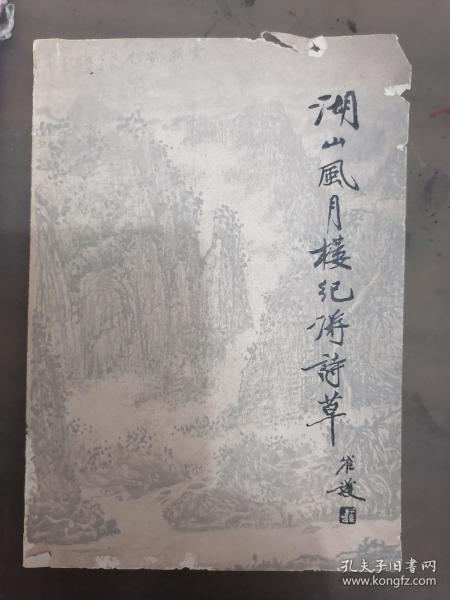 湖山風月樓紀游詩草
崔護
孔夫子旧书网
www.kongfz.com